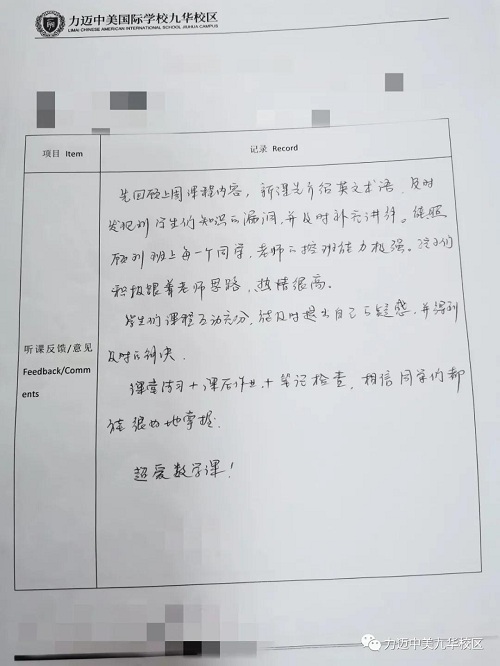 力迈中美国际学校九华校区
LIMAI CHINESE AMERICAN INTERNATIONAL SCHOOL JIUHUA CAMPUS
项目 Item
记录 Record
先回顾上周课程内容，新课先介绍英文术语，及时
发现到学生们知识的漏洞，并及时补充讲解。能照
顾到班上每一个同学，老师的控班能力极强。孩子们
积极跟着老师思路，热情很高。
学生们课程互动充分，能及时提出自己的疑惑，并得到
及时的解决。
听课反馈/意见
Feedback/Comm
ents
课堂练习+课后作业+笔记检查，相信同学们都
能很好地掌握.
超爱数学课！
力迈中美九华校区